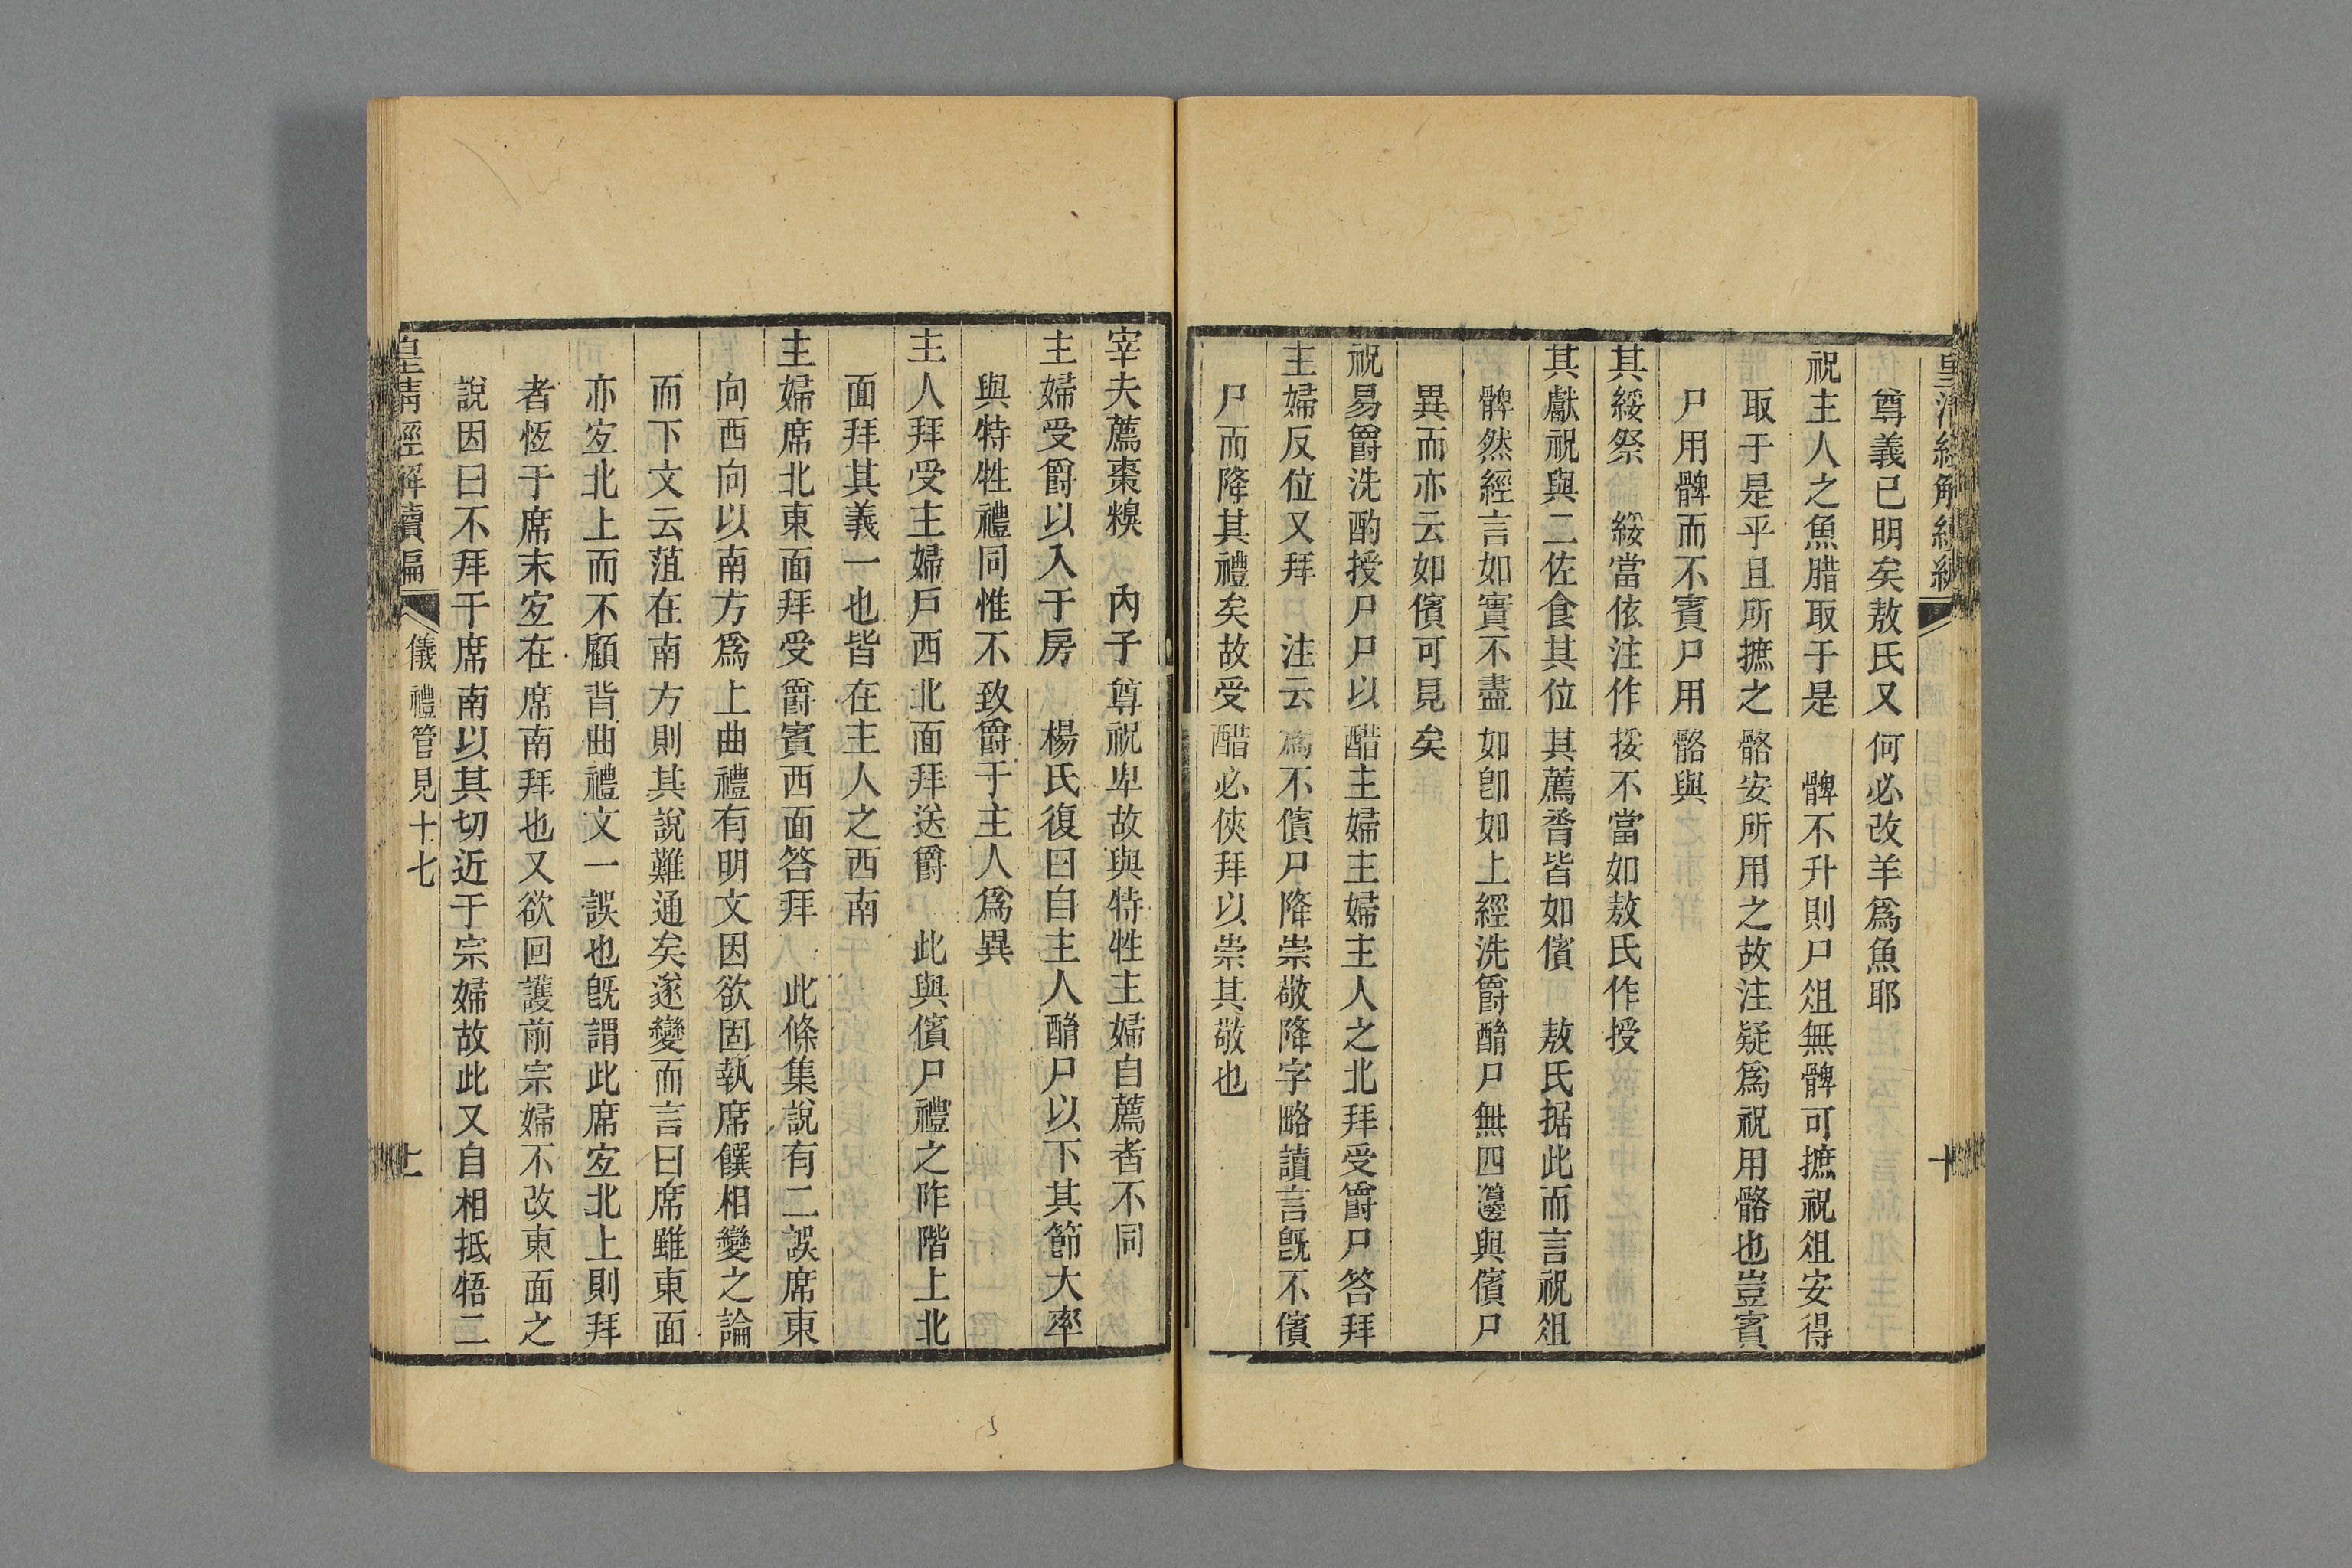 尊義已明矣敖氏又何必改羊爲魚耶
祝主人之魚腊取于是　髀不升則尸俎無髀可摭祝俎安得
取于是乎且所摭之骼安所用之故注疑爲祝用骼也豈賓
尸用髀而不賓尸用骼與
其綏祭　綏當依注作挼不當如敖氏作授
其獻祝與二佐食其位其薦脀皆如儐　敖氏据此而言祝俎
髀然經言如實不盡如卽如上經洗爵酳尸無四籩與儐尸
異而亦云如儐可見矣
祝易爵洗酌授尸尸以醋主婦主婦主人之北拜受爵尸答拜
主婦反位又拜　注云爲不儐尸降崇敬降字略讀言旣不儐
尸而降其禮矣故受醋必俠拜以崇其敬也
十
宰夫薦棗糗　內子尊祝卑故與特牲主婦自薦者不同
主婦受爵以入于房　楊氏復曰自主人酳尸以下其節大率
與特牲禮同惟不致爵于主人爲異
主人拜受主婦戶西北面拜送爵　此與儐尸禮之阼階上北
面拜其義一也皆在主人之西南
主婦席北東面拜受爵賓西面答拜　此條集說有二誤席東
向西向以南方爲上曲禮有明文因欲固執席饌相變之論
而下文云菹在南方則其說難通矣遂變而言曰席雖東面
亦宐北上而不顧背曲禮文一誤也旣謂此席宐北上則拜
者恆于席末宐在席南拜也又欲回護前宗婦不改東面之
說因曰不拜于席南以其切近于宗婦故此又自相抵牾二
皇淸經解續編
儀禮管見十七